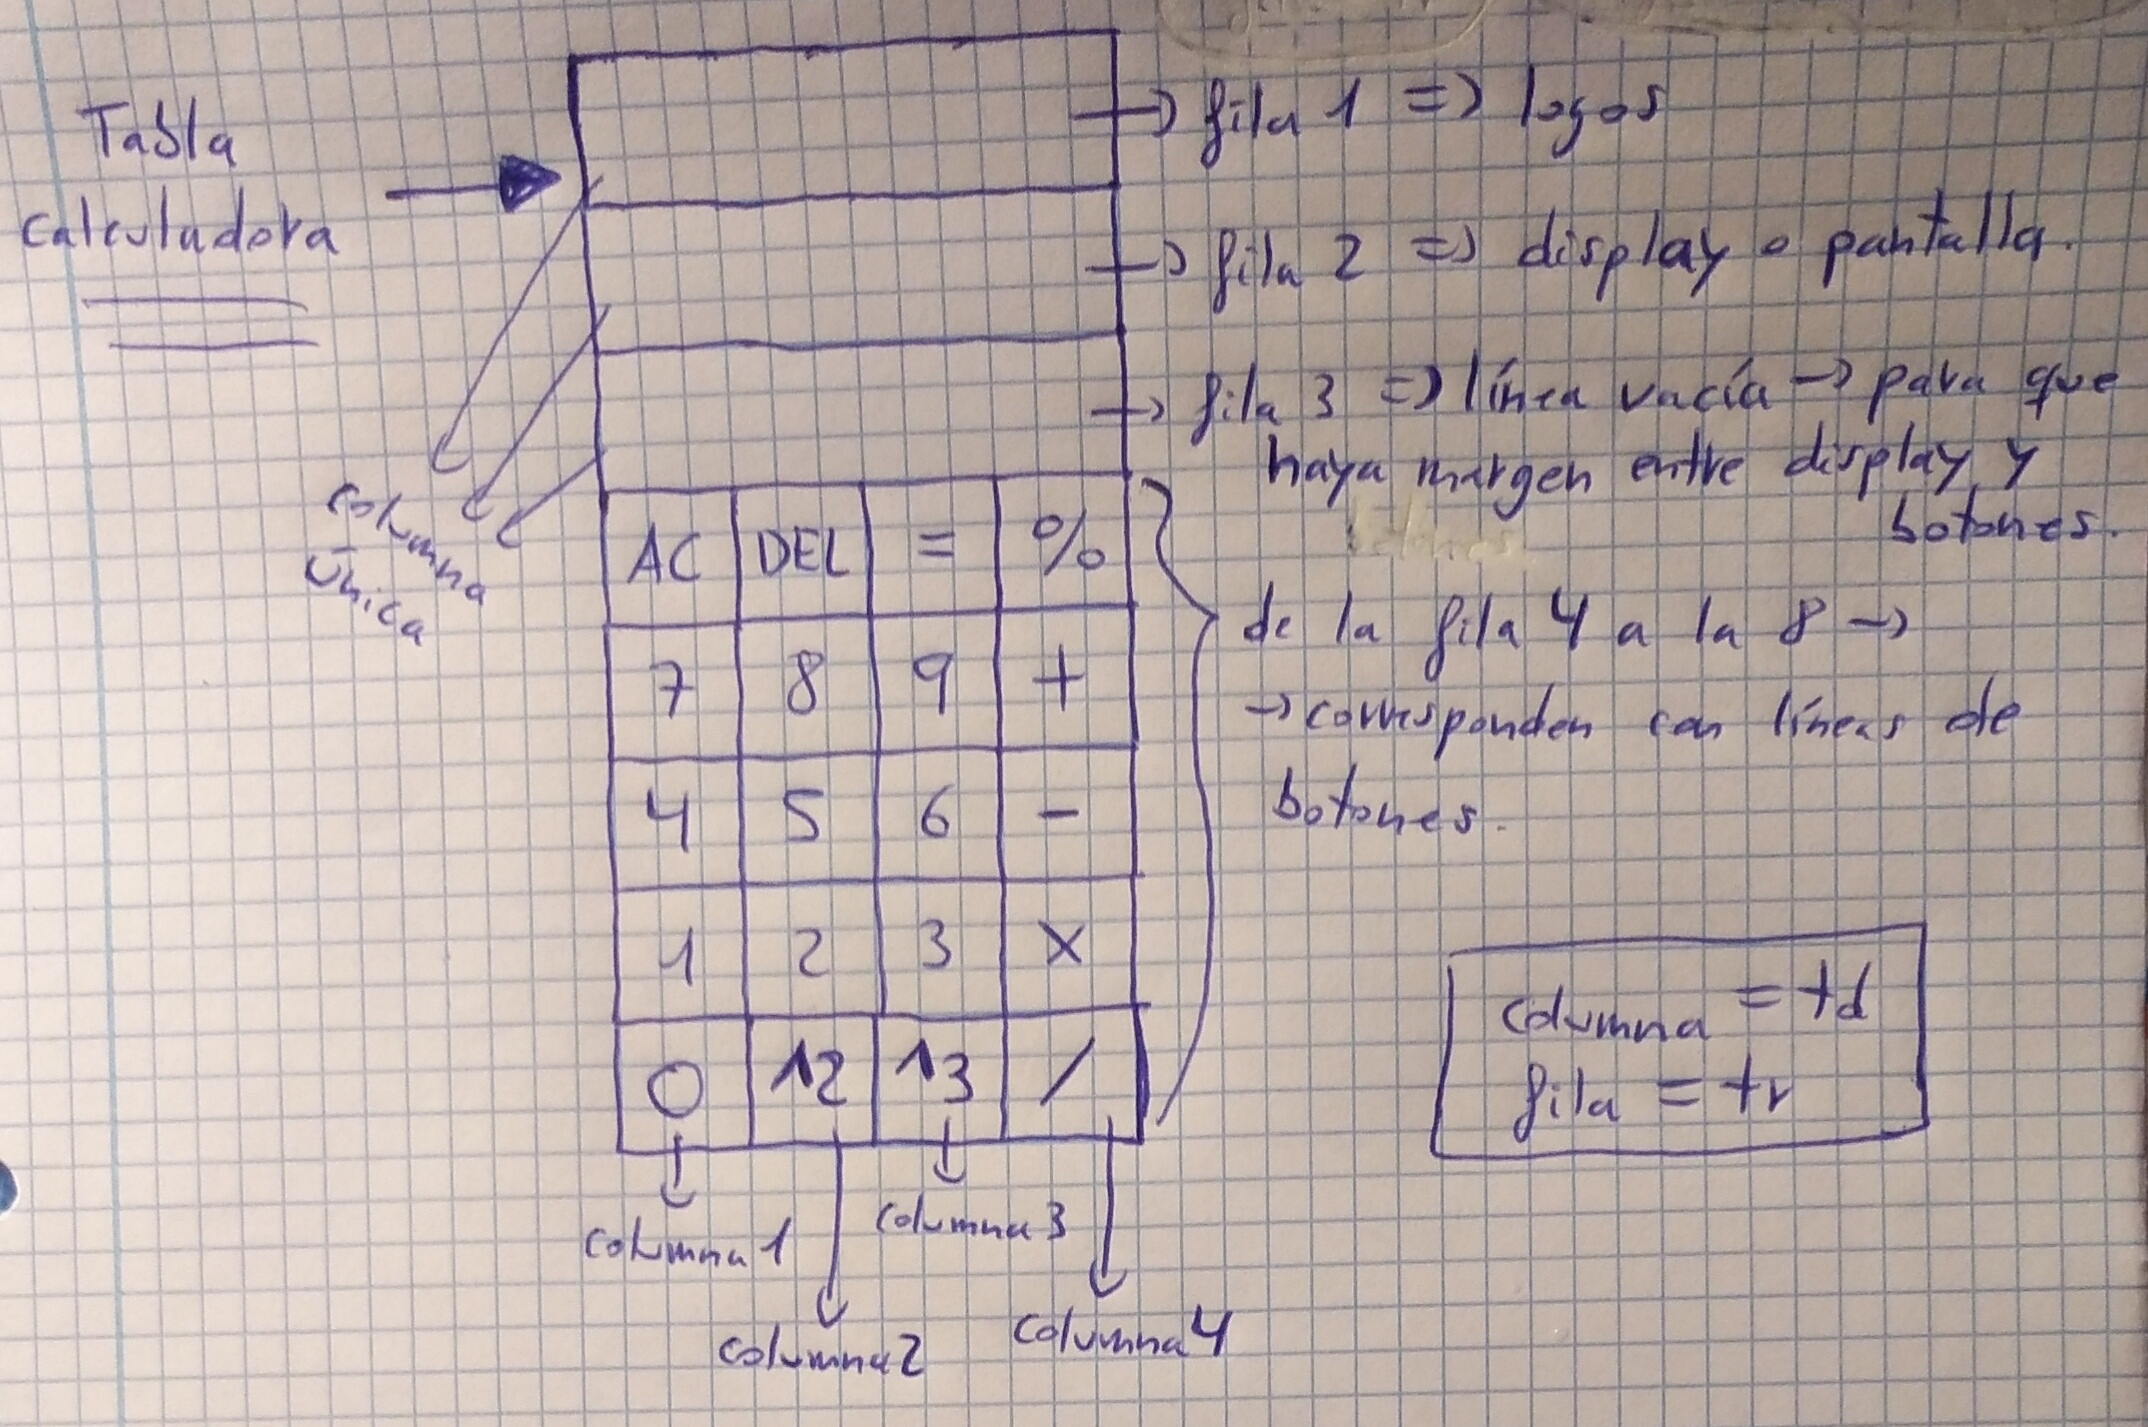 Tabla
calculadora
→ fila 1 => logos
→ fila 2 => display o pantalla.
→ fila 3 => línea vacía → para que
haya margen entre display y
botones.
columna
única
AC DEL = %
7 8 9 +
4 5 6 -
1 2 3 X
0 12 13 /
de la fila 4 a la 8 →
→ corresponden con líneas de
botones.
columna = td
fila = tr
columna 1
columna 2
columna 3
columna 4